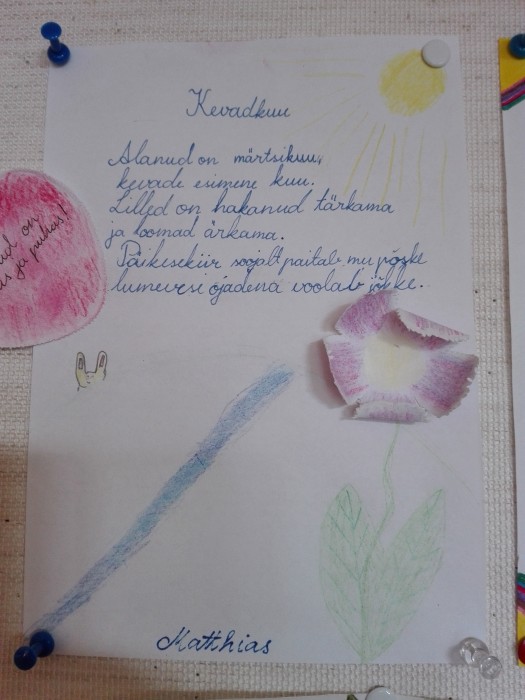 Kevadkuu
Alanud on märtsikuu,
kevade esimene kuu.
Lilled on hakanud tärkama
ja loomad ärkama.
Päikesekiir soojalt paitab mu põske
lumevesi ojadena voolab jõkke.
on
ja puhas!
Matthias